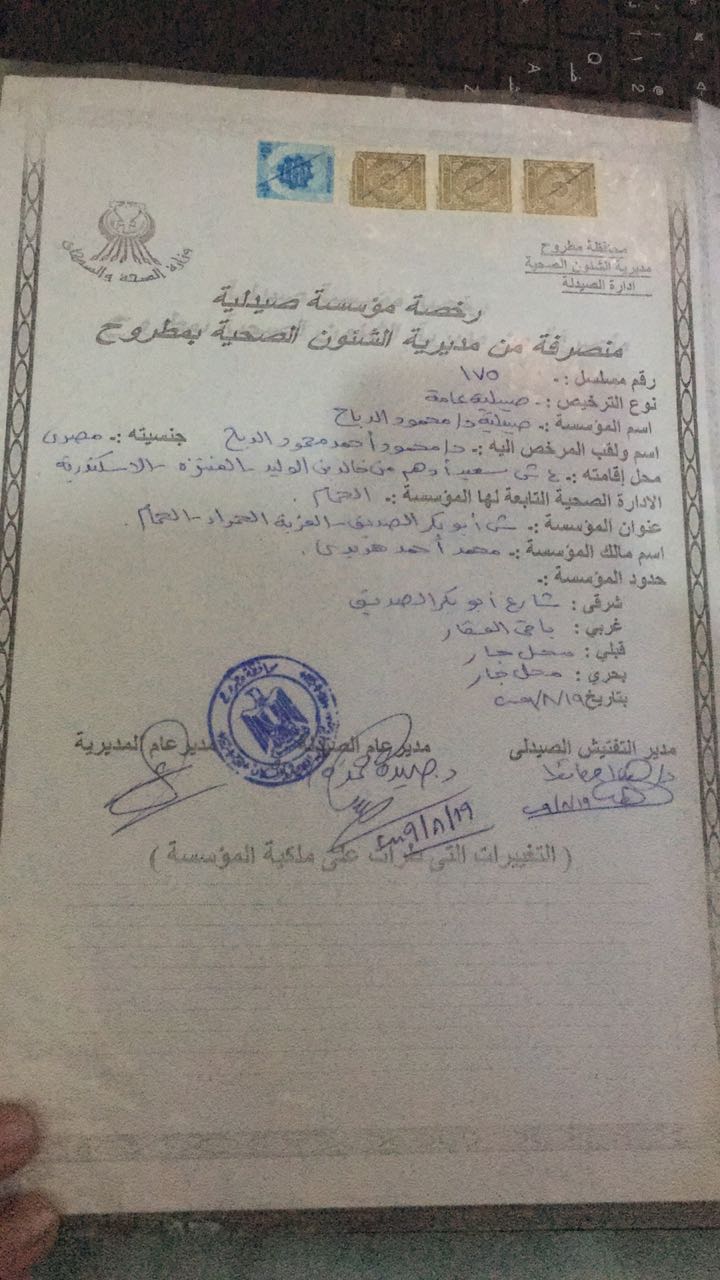 محافظة مطروح
مديرية الشئون الصحية
ادارة الصيدلة
وزارة الصحة والسكان
رخصة مؤسسة صيدلية
منصرفة من مديرية الشئون الصحية بمطروح
رقم مسلسل :- ١٧٥
نوع الترخيص :- صيدلية عامة
اسم المؤسسة :- صيدلية د/ محمود الدباح
اسم ولقب المرخص اليه :- د/ محمود أحمد محمود الدباح جنسيته :- مصرى
محل إقامته :- ٤ ش سعيد أدهم من خالد بن الوليد - المنتزه - الاسكندرية
الادارة الصحية التابعة لها المؤسسة :- الحمام .
عنوان المؤسسة :- ش أبو بكر الصديق - العزبة الحمراء - الحمام .
اسم مالك المؤسسة :- محمد أحمد هريدى .
حدود المؤسسة :-
شرقى : شارع أبو بكر الصديق
غربي : باقى العقار
قبلي : محل جار
بحري : محل جار
بتاريخ ٢٠٠٩/٨/١٩
مدير التفتيش الصيدلى مدير عام الصيدلة مدير عام المديرية
٢٠٠٩/٨/١٩
( التغييرات التي طرأت على ملكية المؤسسة )